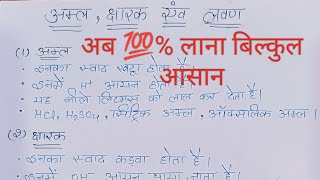 अम्ल, क्षारक एंव लवण
अब 💯% लाना बिल्कुल
आसान
(1) अम्ल
• इनका स्वाद खट्टा होता है।
• इनमें H⁺ आयन होते
• यह नीले लिटमस को लाल कर देता है।
• HCl, H₂SO₄, सिट्रिक अम्ल, ऑक्सेलिक अम्ल।
(2) क्षारक
• इनका स्वाद कडवा होता है।
• इनमें OH⁻ आयन पाया जाता है।